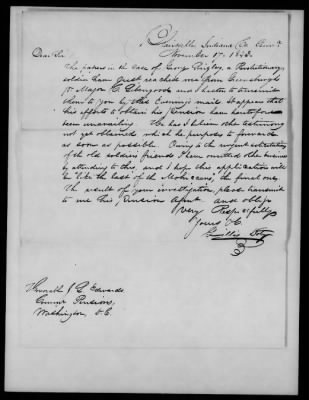 Blairsville Indiana Co Penna
November 17. 1843.
Dear Sir
The papers in the case of George Ringley, a Revolutionary
soldier have just reached me from Greensburgh
Major
them to you by this Evening's mail. It appears that
his efforts to obtain his Pension have heretofore
been unavailing. He has I believe other testimony
not yet obtained which he purposes to forward
as soon as possible. Owing to the urgent solicitations
of the old soldiers friends I have omitted other business
in attending to this, and I hope this application will
be like the last of the Mohicans, the final one.
The result of your investigation, please transmit
to me this Pension Agent and oblige
Very Respectfully
Yours &c.
Honorable J L Edwards
Commr Pensions,
Washington, D C.